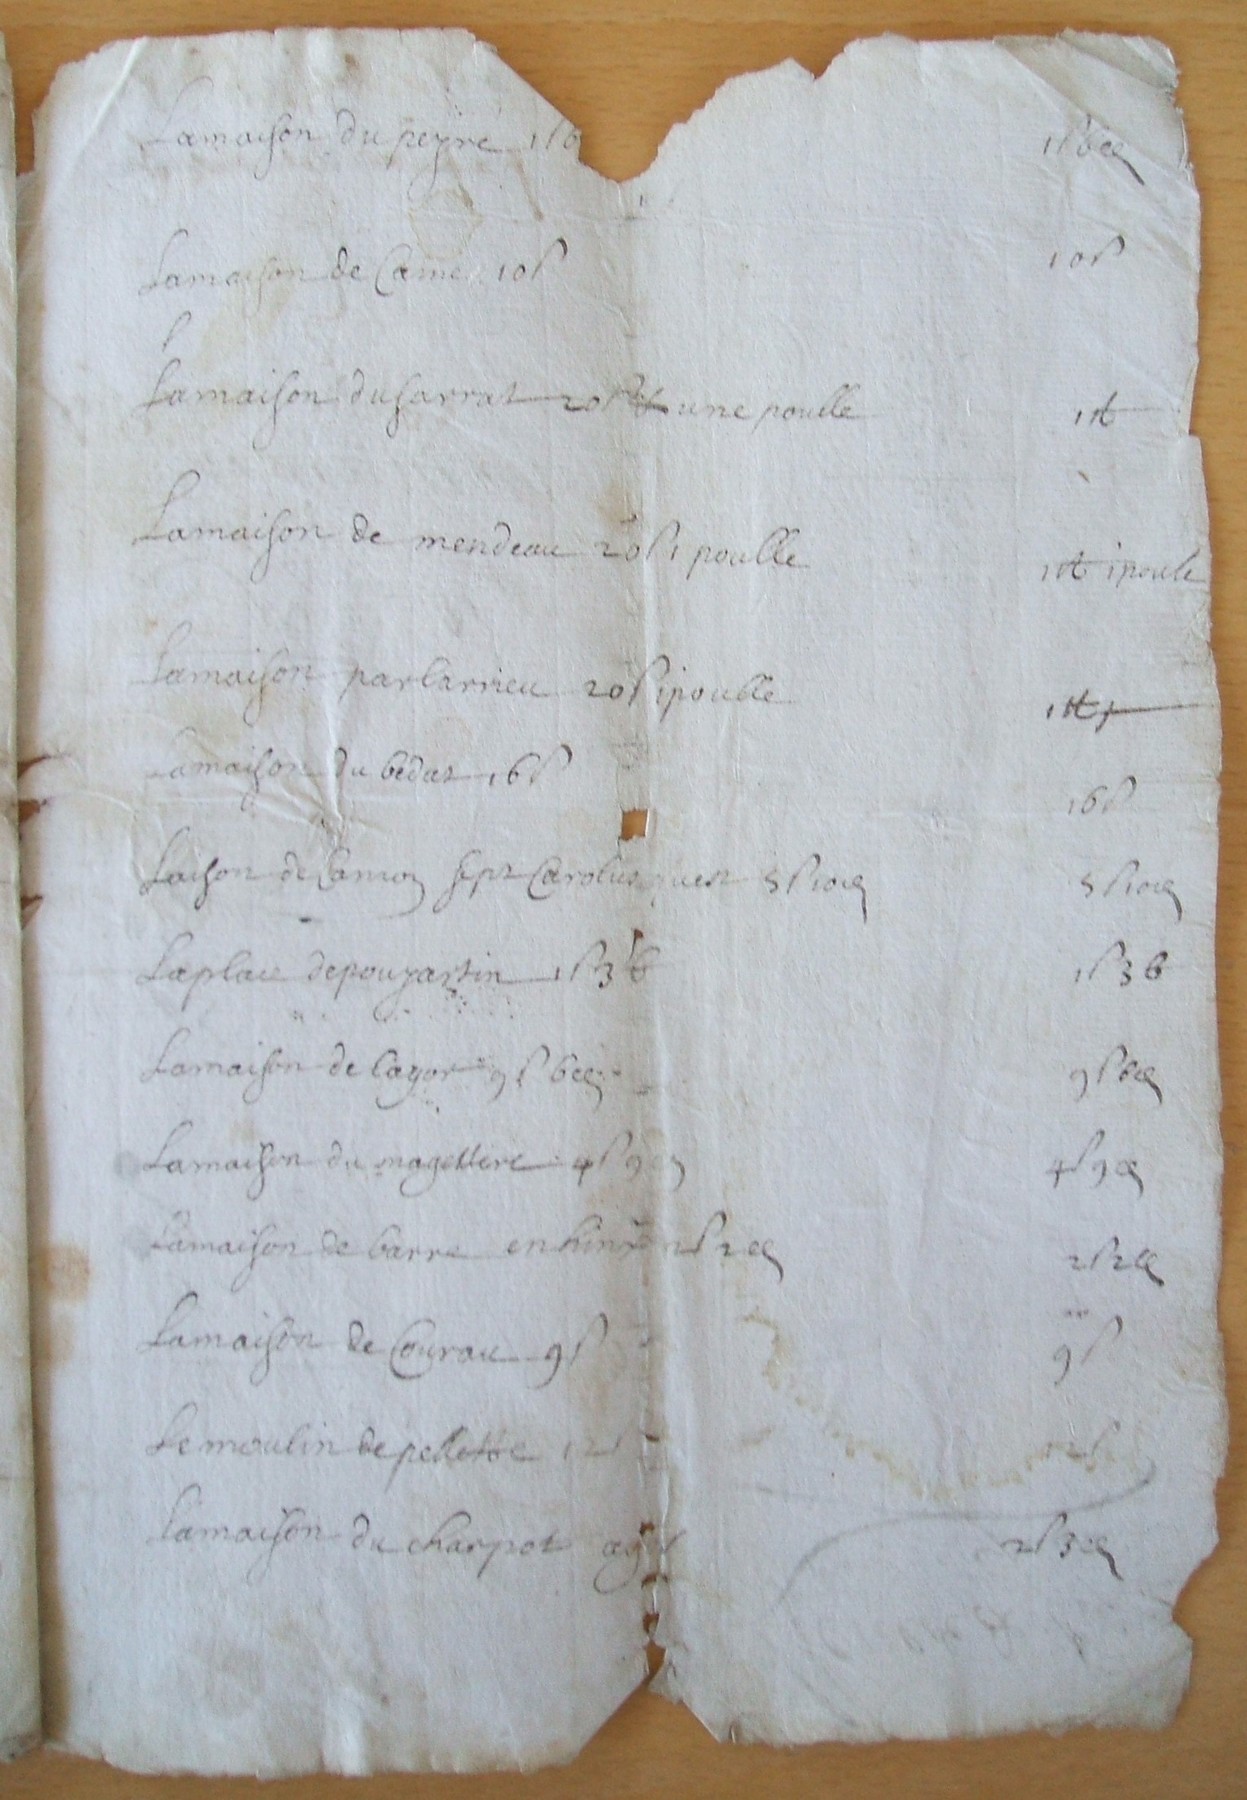 Lamaison du peyre 1s 6 1s 6d
Lamaison de Came 10s 10s
Lamaison dusarrat 20s et une poulle 1tt
Lamaison de mendeau 20s 1 poulle 1tt 1poule
Lamaison parlarrieu 20s 1poulle 1tt 1
Lamaison du bédat 16s 16s
Laison de Lamoy sept Carolus quest 5s 10d 5s 10d
Laplace depouyartin 1s 3 b 1s 3 b
Lamaison de layor 9s 6d 9s 6d
Lamaison du magettere 4s 9d 4s 9d
Lamaison de barre en hinx 2s 2d 2s 2d
Lamaison de Courau 9s 9s
Le moulin de pellette 12s 12s
Lamaison du charpot 2s 3d